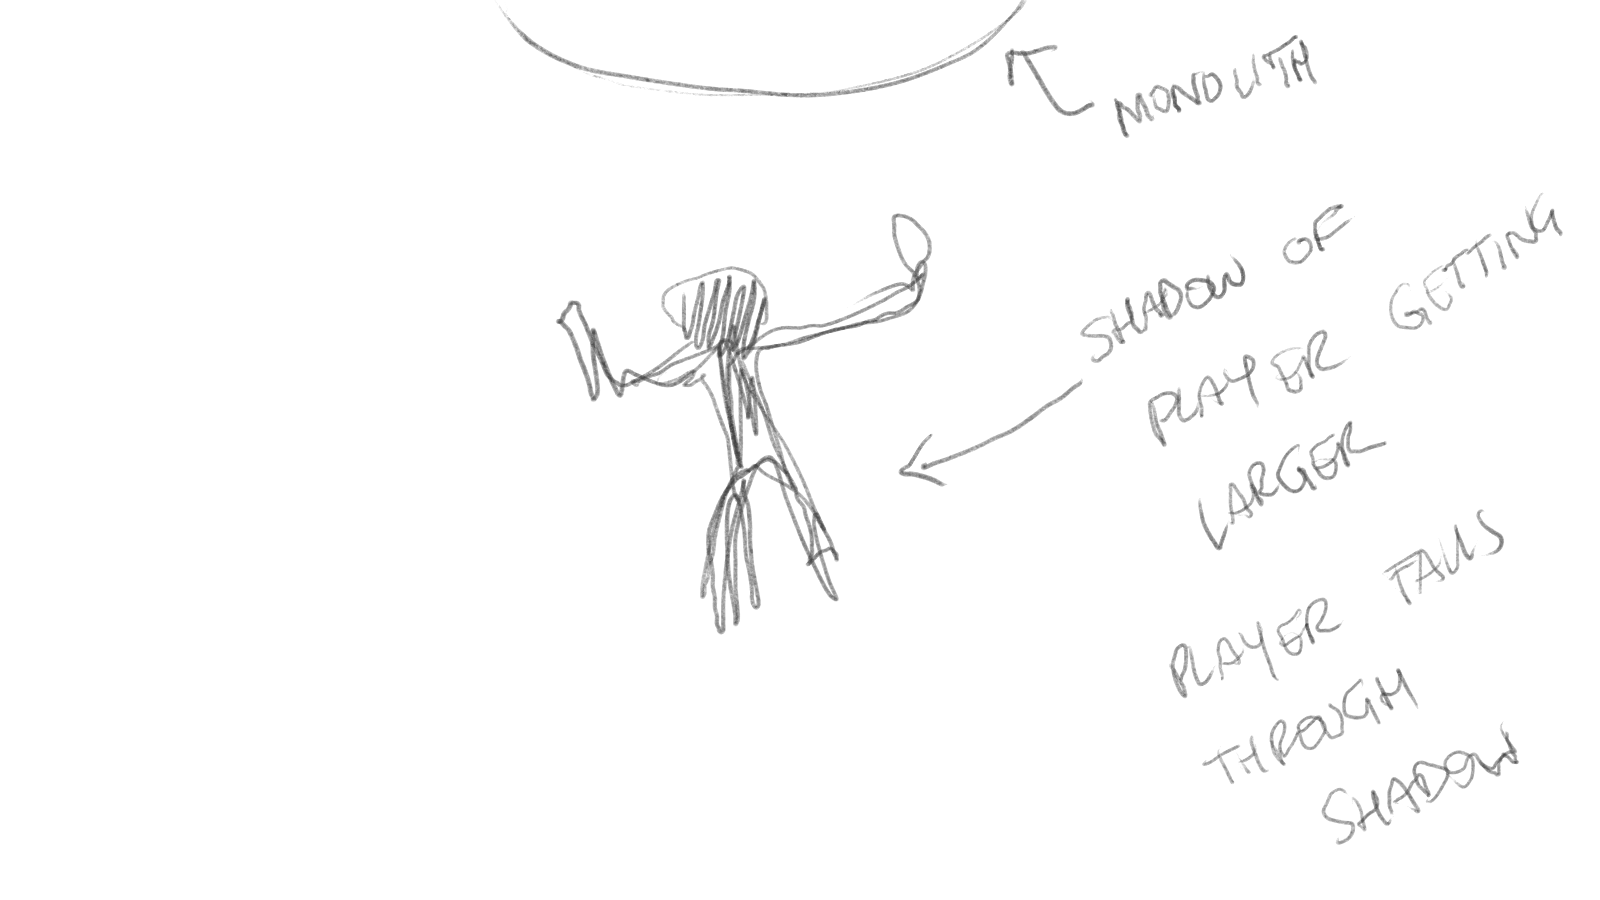 MONOLITH
SHADOW OF
PLAYER GETTING
LARGER
PLAYER FALLS
THROUGH
SHADOW